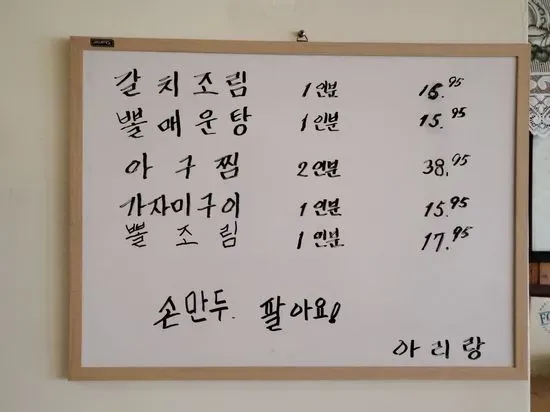 갈치조림 1인분 16.95
뽈매운탕 1인분 15.95
아구찜 2인분 38.95
가자미구이 1인분 15.95
뽈조림 1인분 17.95
손만두. 팔아요!
아리랑